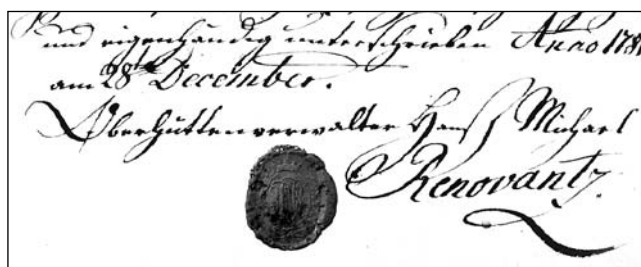 und eigenhändig unterschrieben Anno 178
am 28ten December.
Oberhüttenverwalter Hanß Michael
Renovantz.